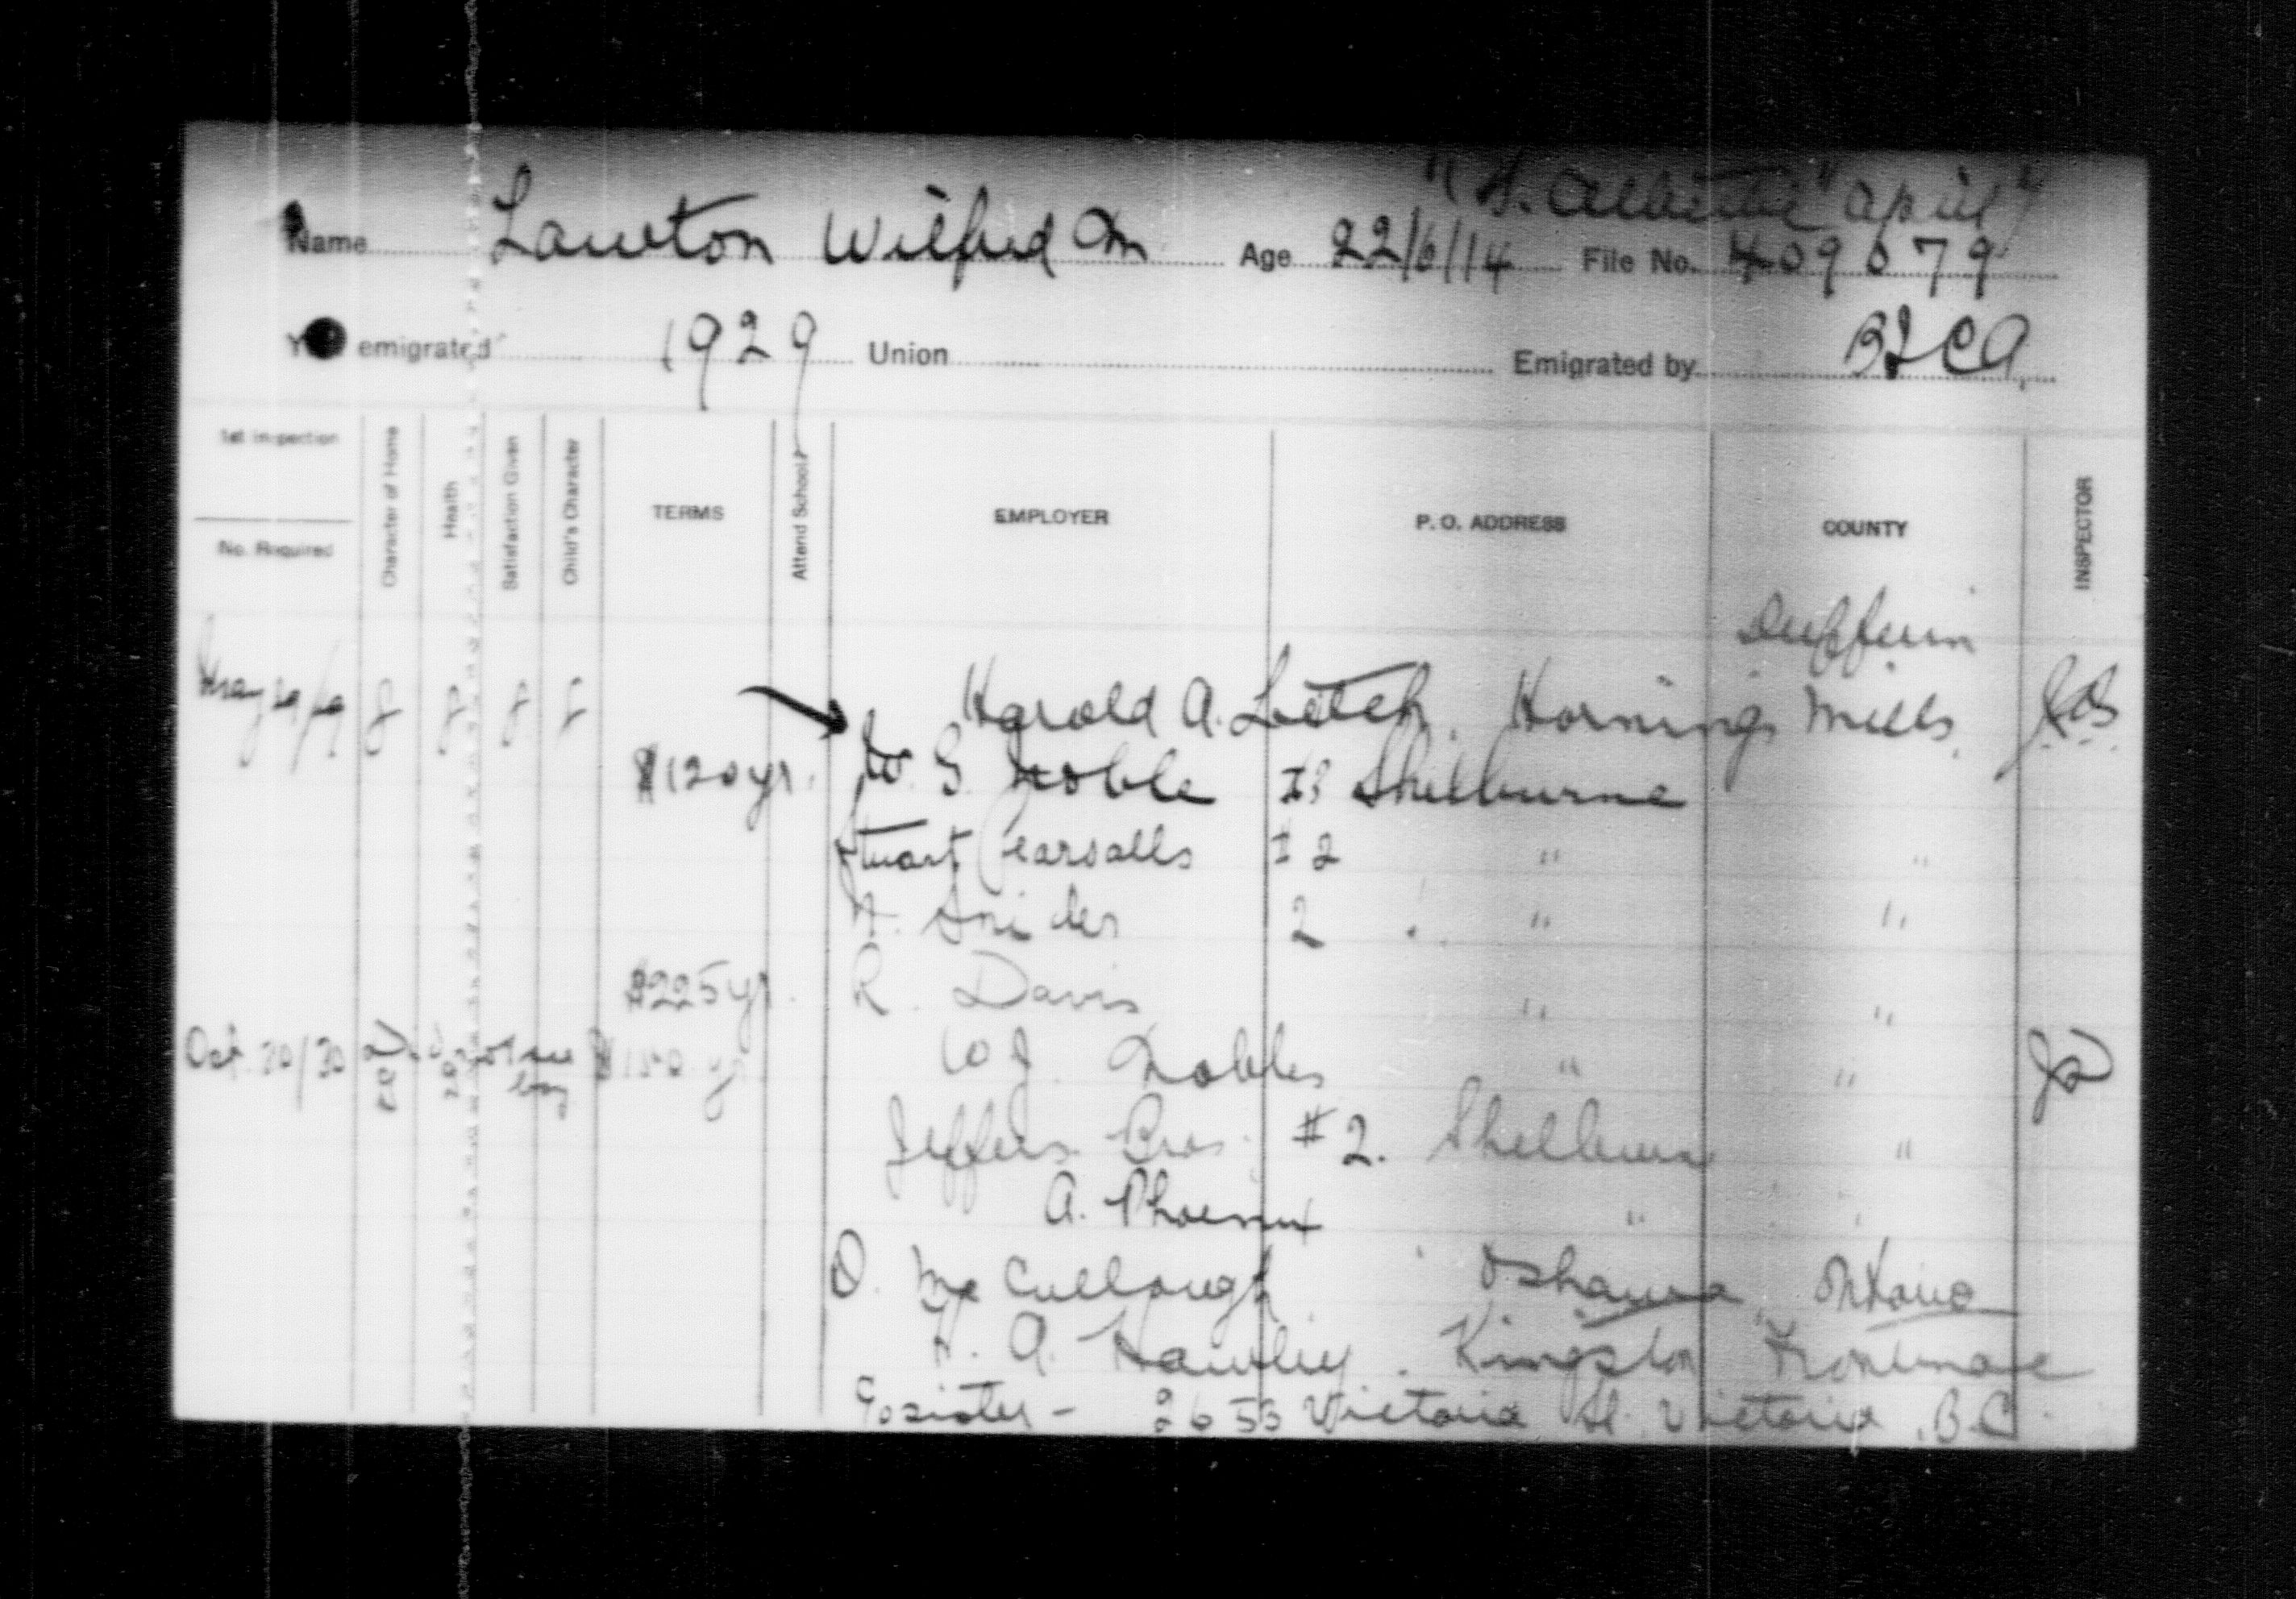 April
Name Lawton Wilfred Wm Age 22/6/14 File No. 409079
emigrated 1929 Union Emigrated by BICA
1st Inspection
No. Required
Character of Home
Health
Satisfaction Given
Child's Character
TERMS
Attend School?
EMPLOYER
P. O. ADDRESS
COUNTY
INSPECTOR
Dufferin
May 29/29 g g g g Harold A. Leitch. Hornings Mills.
$120 yr. W. G. Noble #3 Shelburne
Stuart Pearsalls # 2 " "
Snider 2 " "
$225 yr. R. Davis " "
Oct. 20/30 $150 yr W J. Nobles " "
Jeffers Bros. #2. Shelburne "
A. Phoenix "
D. McCullough Oshawa, Ontario
H. A. Hawley. Kingston Frontenac
C/o sister - 2653 Victoria St. Victoria, B.C.